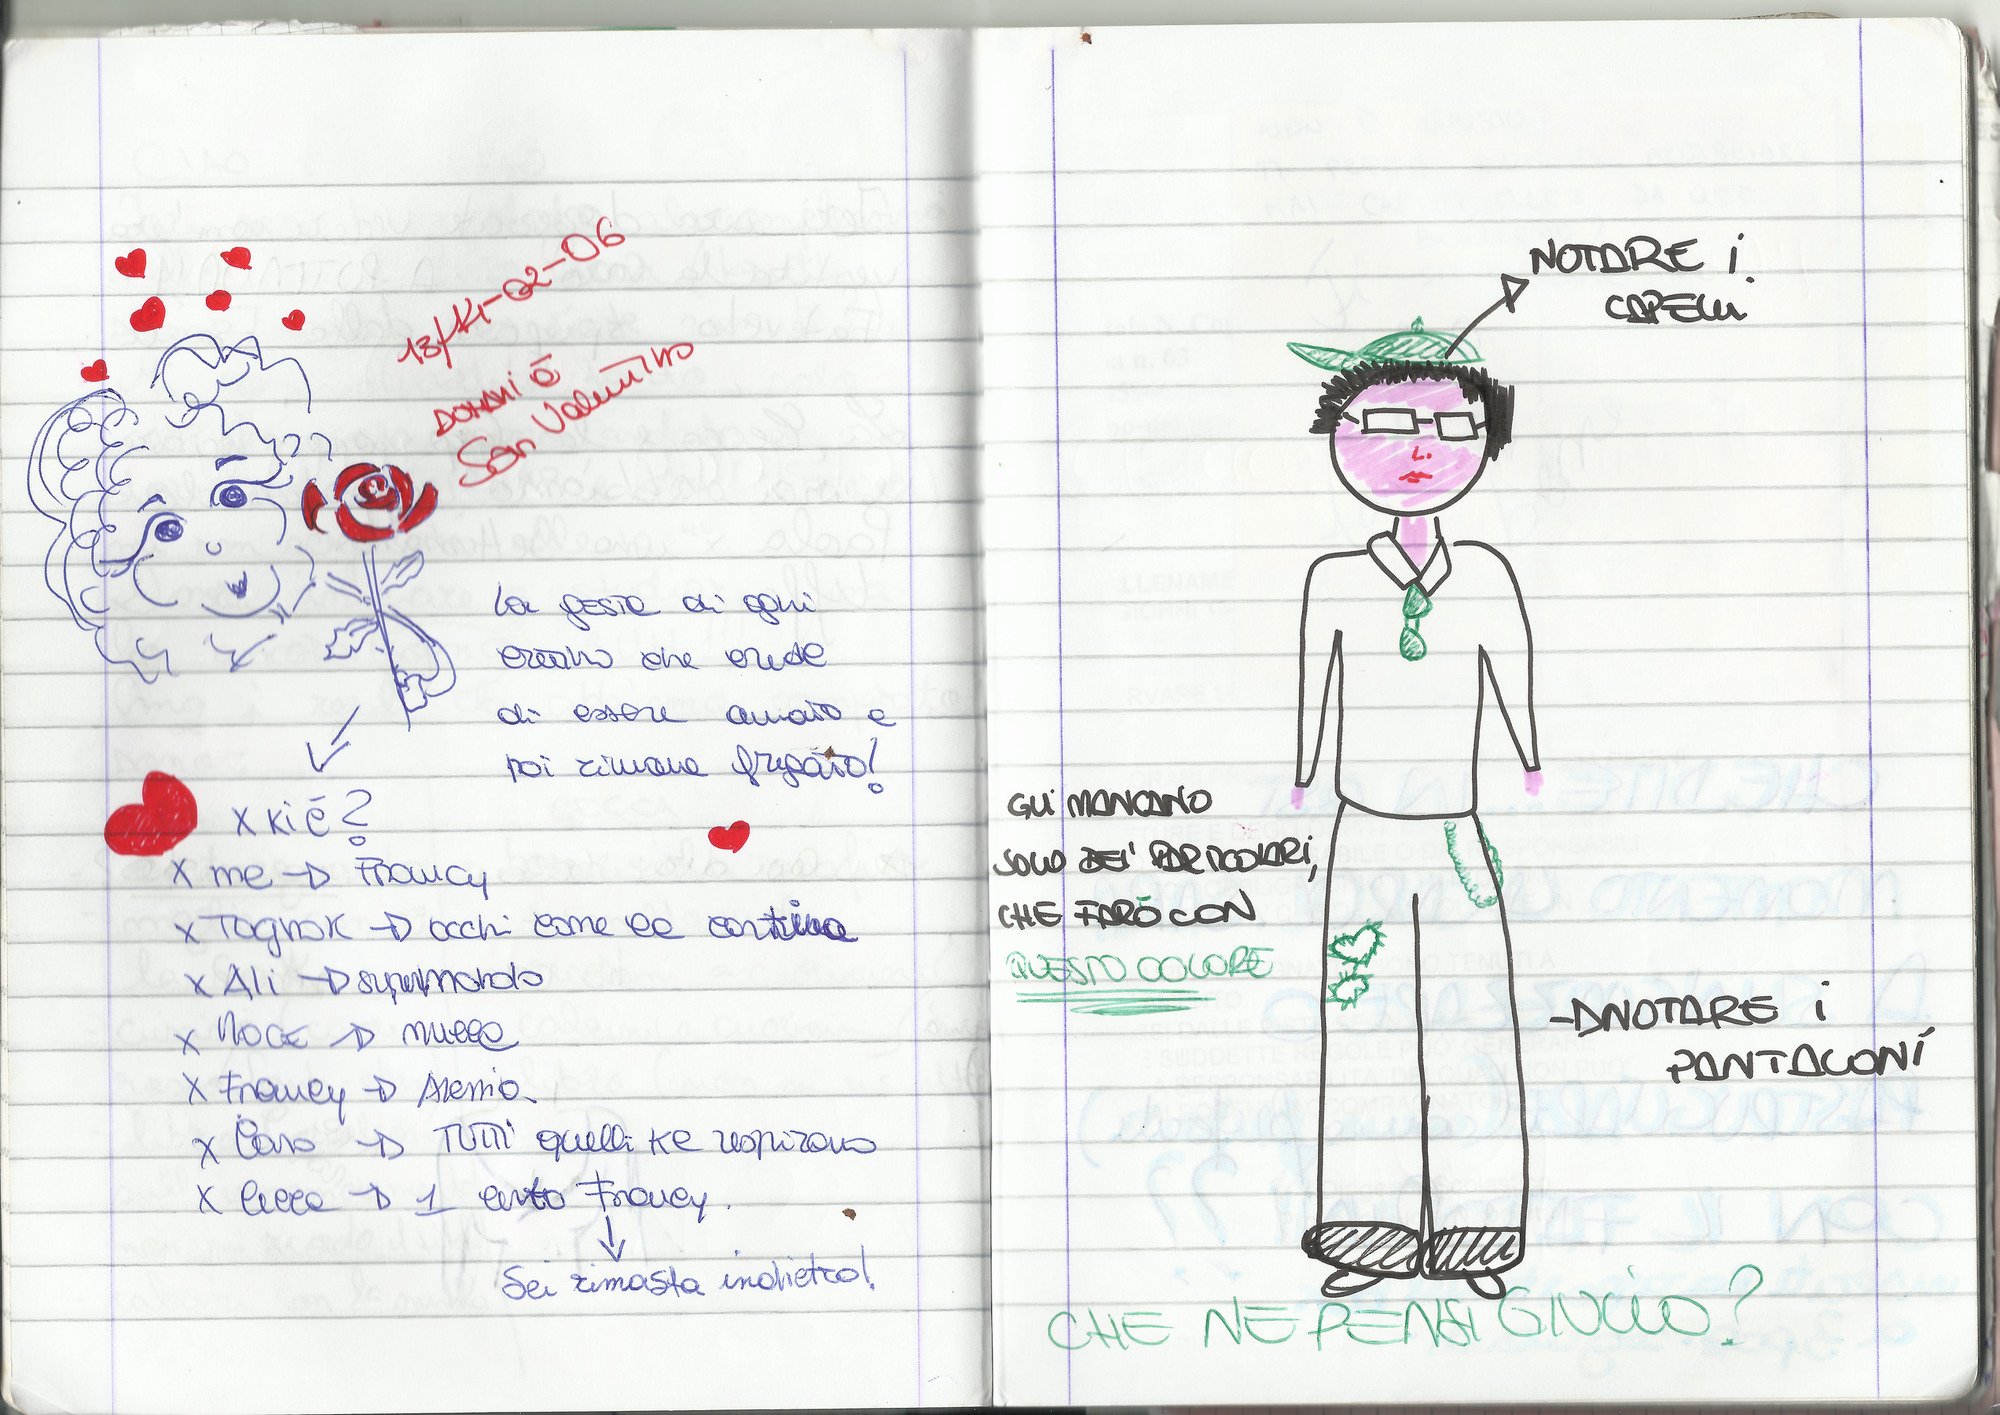 13/14-02-06
DOMANI è
San Valentino
La festa di ogni
cretino che crede
di essere amato e
poi rimane fregato!
x ki è?
x me → Francy
x Tognok → occhi come le cantine
x Ali → supernardo
x Noce →
x Francy → Alessio
x → TUTTI quelli ke respirano
x Cecca → 1 certo Francy.
Sei rimasta indietro!
NOTARE i
CAPELLI
GLI MANCANO
SOLO DEI PARTICOLARI,
CHE FARÒ CON
QUESTO COLORE
NOTARE i
PANTALONI
CHE NE PENSI GIUCCIO?